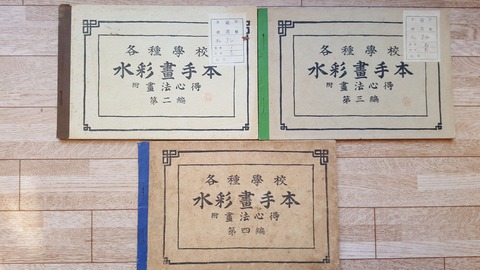 各種學校
水彩畫手本
附畫法心得
第二編
各種學校
水彩畫手本
附畫法心得
第三編
各種學校
水彩畫手本
附畫法心得
第四編